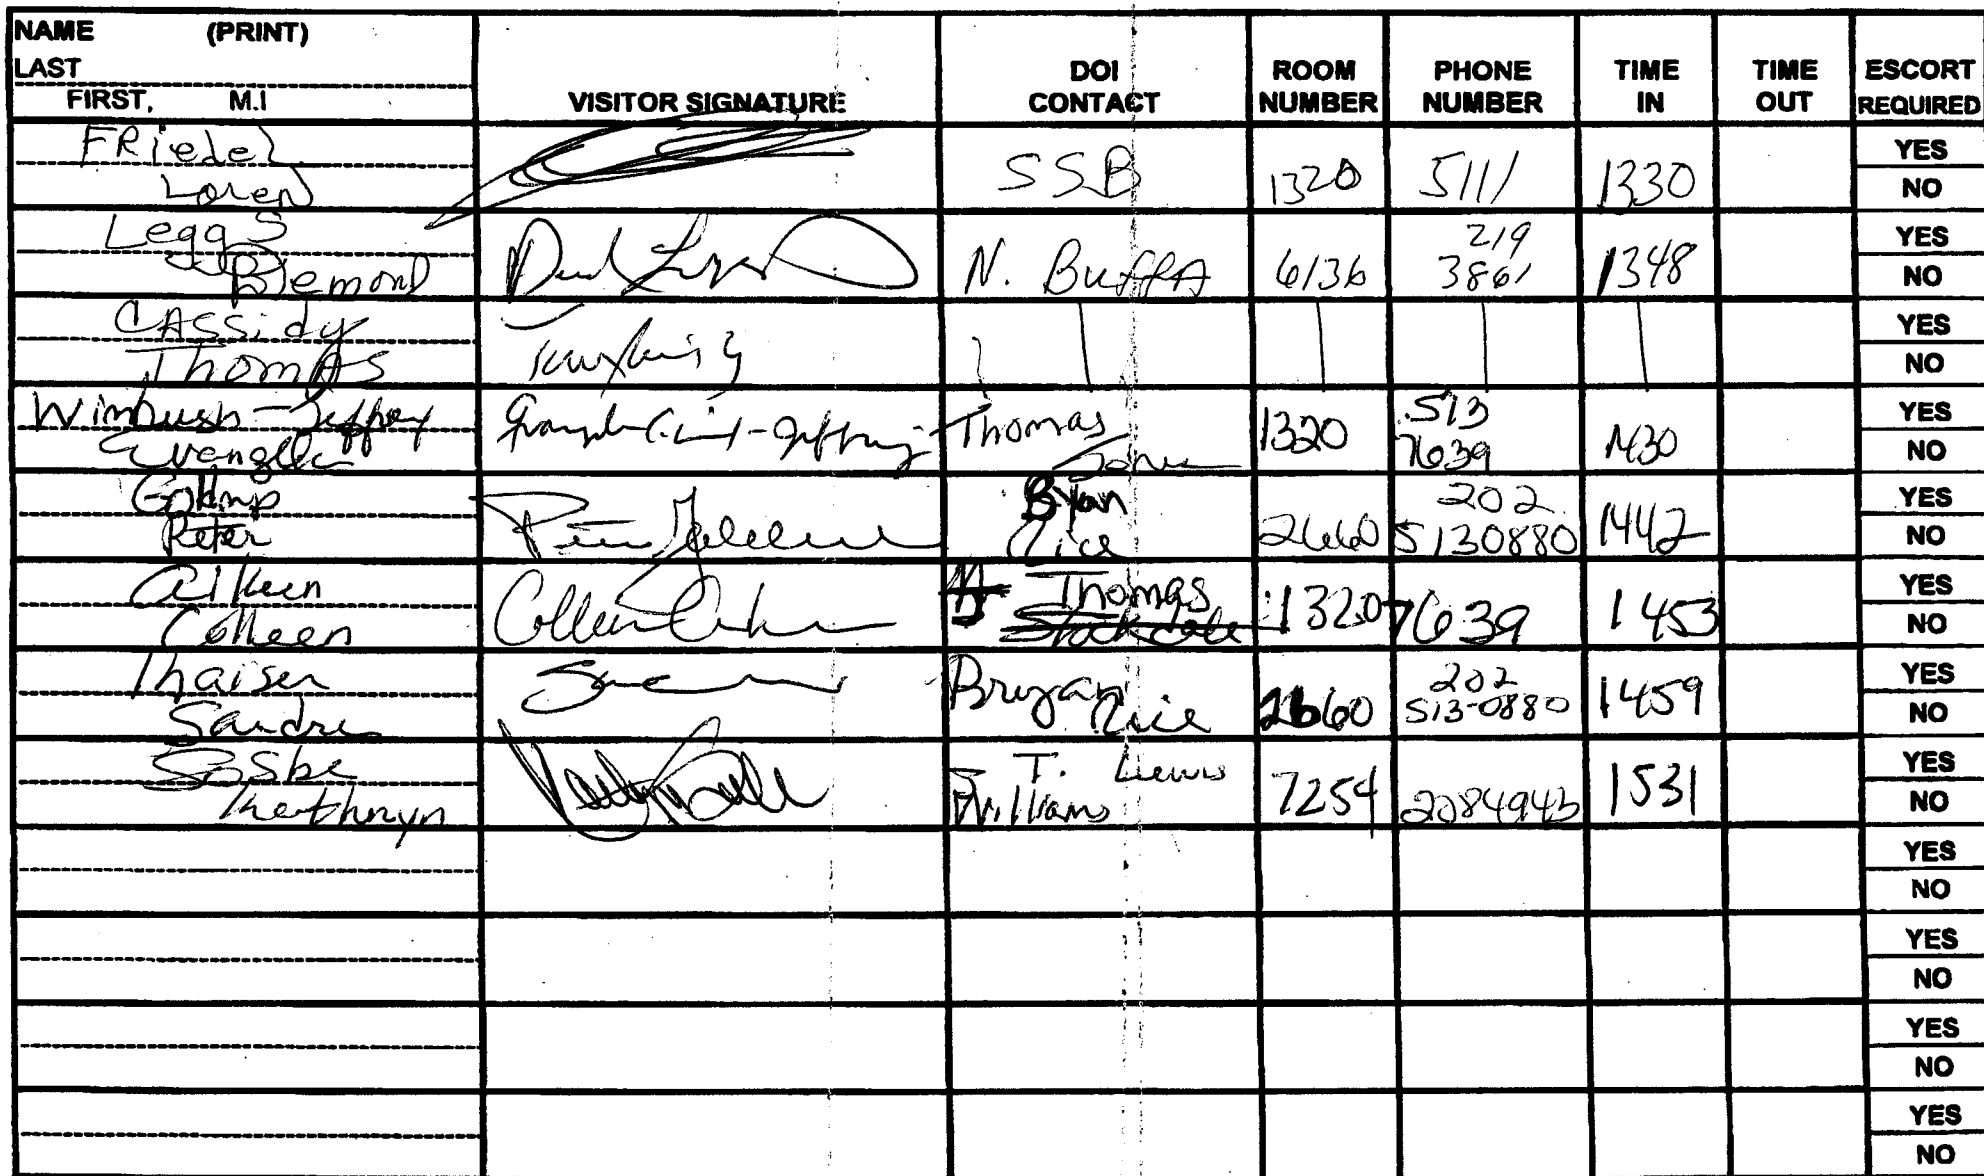 NAME (PRINT)
LAST
FIRST, M.I
VISITOR SIGNATURE
DOI CONTACT
ROOM NUMBER
PHONE NUMBER
TIME IN
TIME OUT
ESCORT REQUIRED
FRiedel
Loren
SSB 1320 5111 1330
YES
NO
Leggs
Demond
N. Buffa 6136 219 3861 1348
YES
NO
CASSidy
ThomAS
YES
NO
Wimbush-Jeffrey
Thomas 1320 513 7639 1430
YES
NO
Peter
Rice 2660 202 5130880 1442
YES
NO
Aiken
Colleen
Thomas Stockdale 1320 7639 1453
YES
NO
Thaiser
Sandra
Bryan Rice 2660 202 513-0880 1459
YES
NO
Kathryn
T. Lewis
Williams 7254 2084943 1531
YES
NO
YES
NO
YES
NO
YES
NO
YES
NO